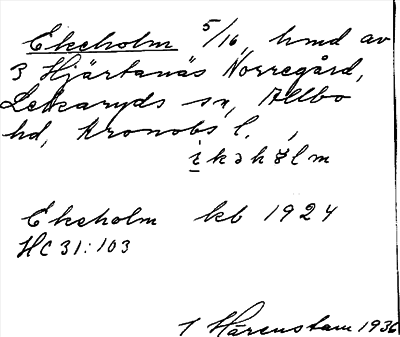 Ekeholm 5/16, hmd av
3 Hjärtanäs Norregård,
Lekaryds sn, Allbo
hd, Kronobs l.
Ekeholm kb 1924
HC 31:103
1 Hårenstam 1936